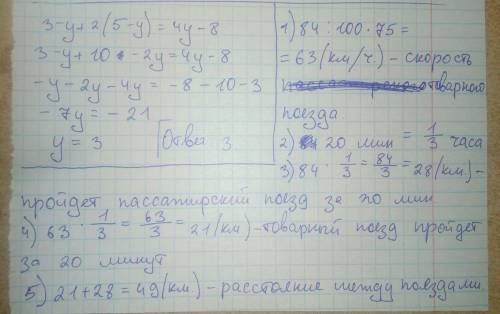 3-y+2(5-y)=4y-8
3-y+10-2y=4y-8
-y-2y-4y=-8-10-3
-7y=-21
y=3 Ответ 3
1) 84:100·75=
=63(км/ч.) - скорость
товарного
поезда.
2) 20 мин = 1/3 часа
3) 84 · 1/3 = 84/3 = 28(км) -
пройдет пассажирский поезд за 20 мин
4) 63 · 1/3 = 63/3 = 21(км) - товарный поезд пройдет
за 20 минут
5) 21+28=49(км) - расстояние между поездами